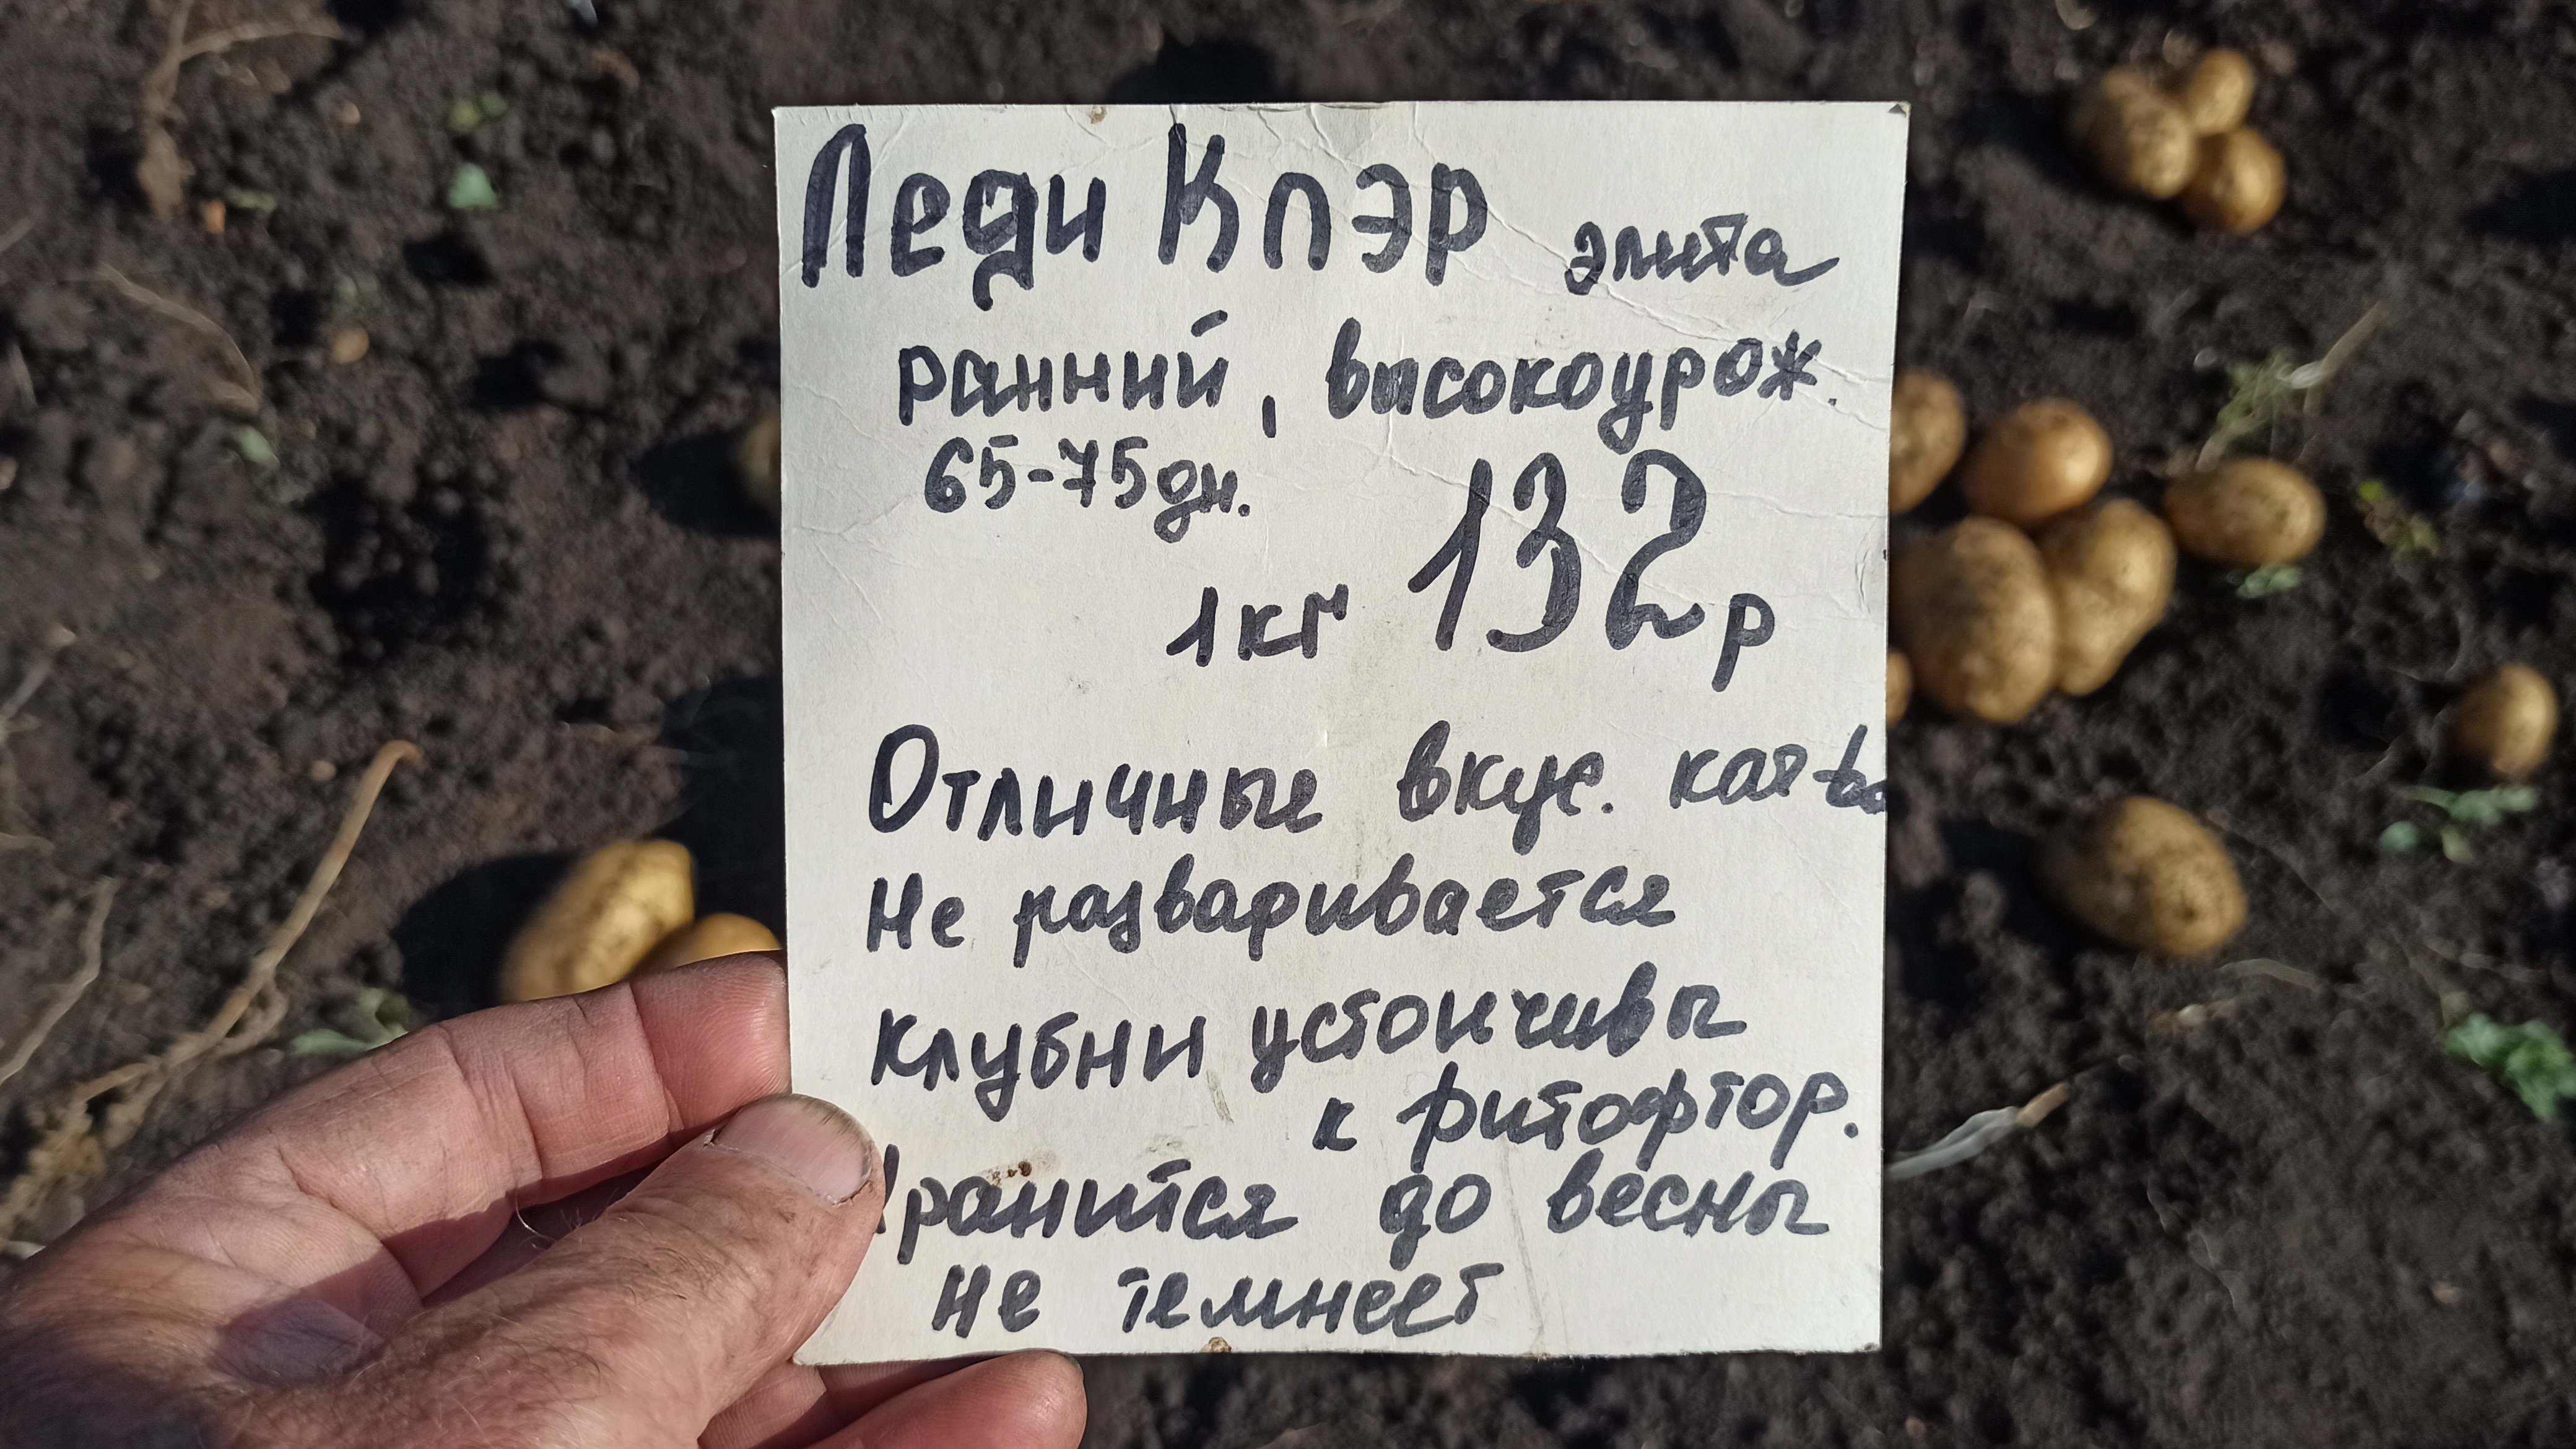 Леди Клэр элита
ранний, высокоурож.
65-75дн.
1кг 132р
Отличные вкус. кач-ва
Не разваривается
клубни устойчивы
к фитофтор.
Хранится до весны
не темнеет